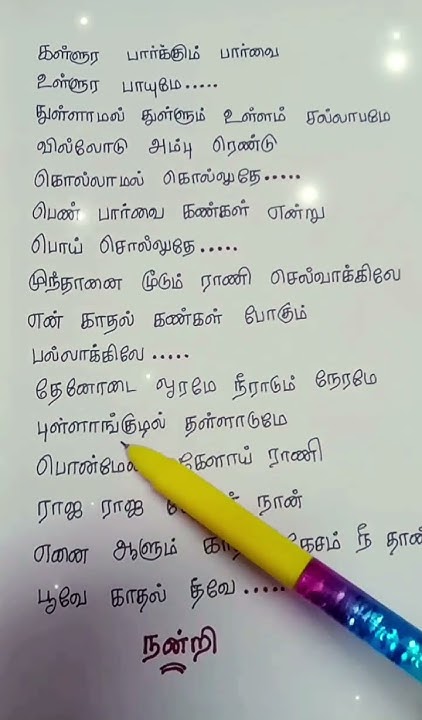 கள்ளூர பார்க்கும் பார்வை
உள்ளூர பாயுமே.....
துள்ளாமல் துள்ளும் உள்ளம் சல்லாபமே
வில்லோடு அம்பு ரெண்டு
கொல்லாமல் கொல்லுதே.....
பெண் பார்வை கண்கள் என்று
பொய் சொல்லுதே.....
முந்தானை மூடும் ராணி செல்வாக்கிலே
என் காதல் கண்கள் போகும்
பல்லாக்கிலே.....
தேனோடை ஓரமே நீராடும் நேரமே
புள்ளாங்குழல் தள்ளாடுமே
பொன்மேனி ராணி
ராஜ ராஜ நான்
எனை ஆளும் நீ தான்
பூவே காதல் தீவே.....
நன்றி